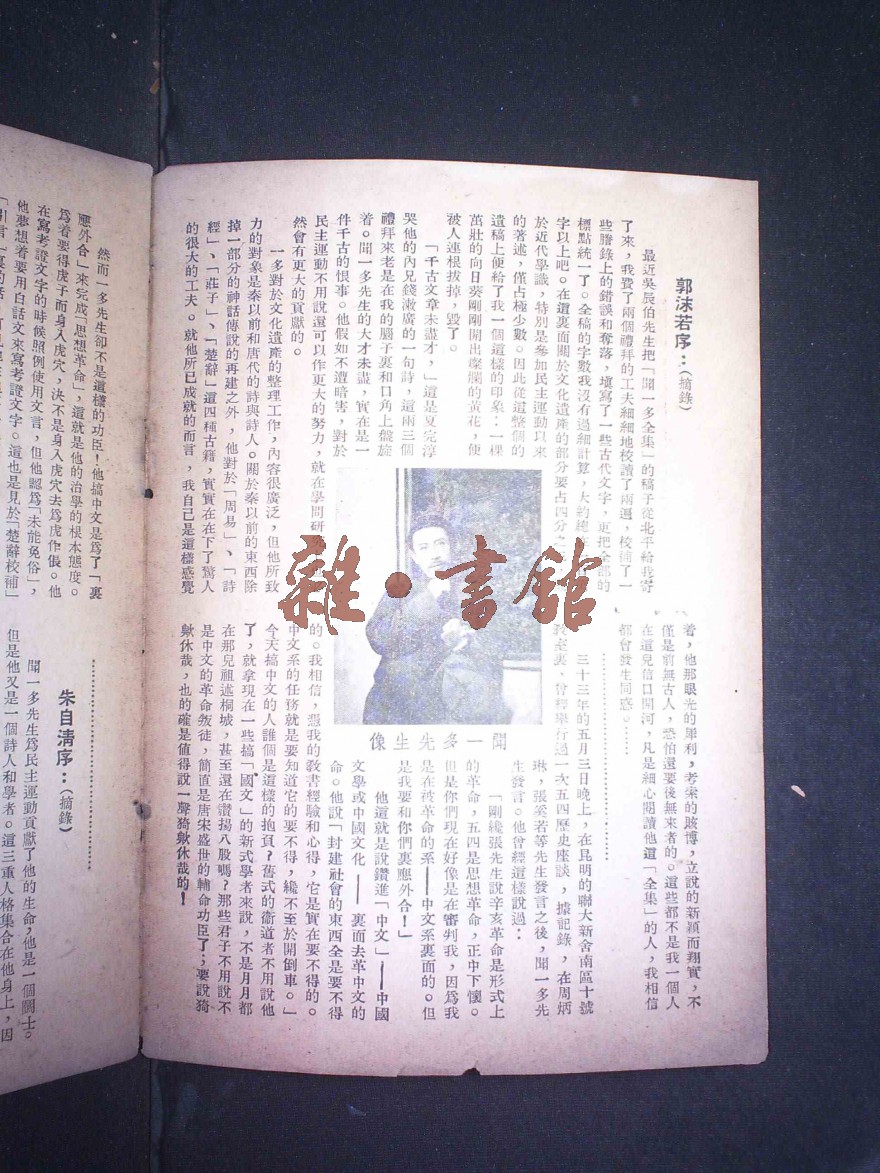 郭沫若序：（摘錄）
最近吳辰伯先生把「聞一多全集」的稿子從北平給我寄
了來，我費了兩個禮拜的工夫細細地校讀了兩遍，校補了一
些謄錄上的錯誤和奪落，填寫了一些古代文字，更把全部的
標點統一了。全稿的字數我沒有過細計算，大約總
字以上吧。在這裏面關於文化遺產的部分要占四分之
於近代學識，特別是參加民主運動以來
的著述，僅占極少數。因此從這整個的
遺稿上便給了我一個這樣的印象：一棵
茁壯的向日葵剛剛開出燦爛的黃花，便
被人連根拔掉，毀了。
「千古文章未盡才，」這是夏完淳
哭他的內兄錢漱廣的一句詩，這兩三個
禮拜來老是在我的腦子裏和口角上盤旋
着。聞一多先生的大才未盡，實在是一
件千古的恨事。他假如不遭暗害，對於
民主運動不用說還可以作更大的努力，就在學問研
然會有更大的貢獻的。
一多對於文化遺產的整理工作，內容很廣泛，但他所致
力的對象是秦以前和唐代的詩與詩人。關於秦以前的東西除
掉一部分的神話傳說的再建之外，他對於「周易」、「詩
經」、「莊子」、「楚辭」這四種古籍，實實在在下了驚人
的很大的工夫。就他所已成就的而言，我自己是這樣感覺
聞一多先生像
着，他那眼光的犀利，考索的賅博，立說的新穎而翔實，不
僅是前無古人，恐怕還要後無來者的。這些都不是我一個人
在這兒信口開河，凡是細心閱讀他這「全集」的人，我相信
都會發生同感。……
三十三年的五月三日晚上，在昆明的聯大新舍南區十號
教室裏，曾經舉行過一次五四歷史座談，據記錄，在周炳
琳，張奚若等先生發言之後，聞一多先
生發言。他曾經這樣說過：
「剛纔張先生說辛亥革命是形式上
的革命，五四是思想革命，正中下懷。
但是你們現在好像是在審判我，因爲我
是在被革命的系——中文系裏面的。但
是我要和你們裏應外合！」
他這就是說鑽進「中文」——中國
文學或中國文化——裏面去革中文的
命。他說「封建社會的東西全是要不得
的。我相信，憑我的教書經驗和心得，它是實在要不得的。
中文系的任務就是要知道它的要不得，纔不至於開倒車。」
今天搞中文的人誰個是這樣的抱負？舊式的衞道者不用說他
了，就拿現在一些搞「國文」的新式學者來說，不是月月都
在那兒祖述桐城，甚至還在讚揚八股嗎？那些君子不用說不
是中文的革命叛徒，簡直是唐宋盛世的輔命功臣了；要說猗
歟休哉，也的確是值得說一聲猗歟休哉的！
然而一多先生卻不是這樣的功臣！他搞中文是爲了「裏
應外合」來完成「思想革命」，這就是他的治學的根本態度。
爲着要得虎子而身入虎穴，決不是身入虎穴去爲虎作倀。他
在寫考證文字的時候照例使用文言，但他認爲「未能免俗」，
他夢想着要用白話文來寫考證文字。這也是見於「楚辭校補」
朱自清序：（摘錄）
聞一多先生爲民主運動貢獻了他的生命，他是一個鬬士。
但是他又是一個詩人和學者。這三重人格集合在他身上，因
雜·書館